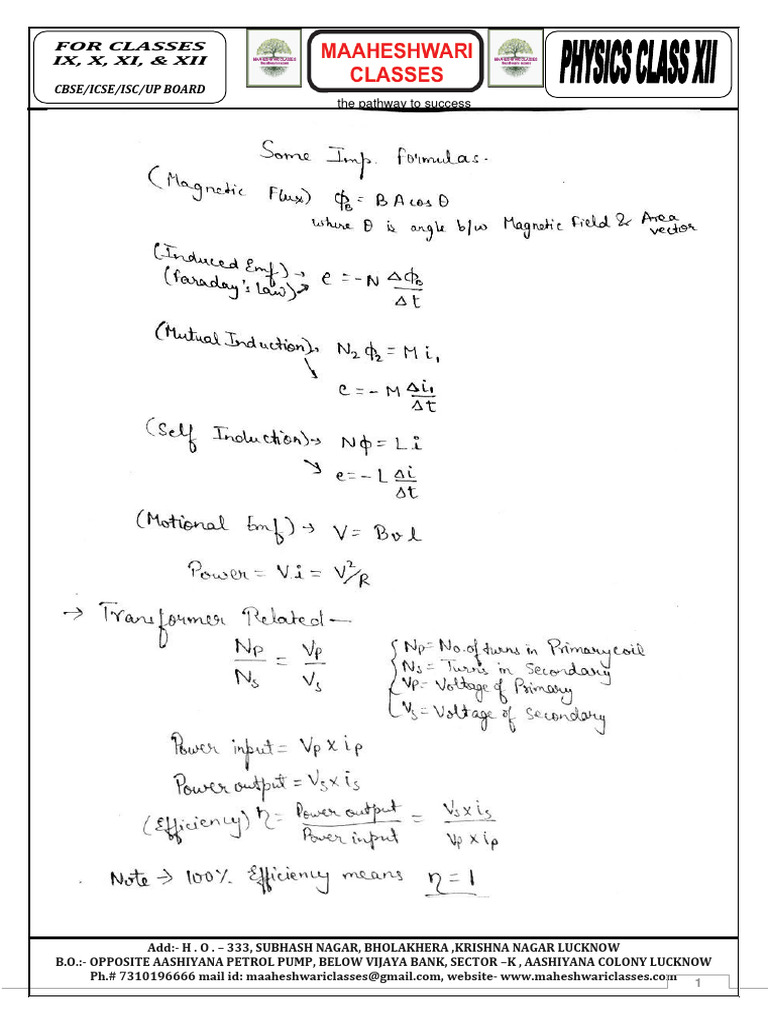 FOR CLASSES
IX, X, XI, & XII
CBSE/ICSE/ISC/UP BOARD
MAAHESHWARI
CLASSES
the pathway to success
PHYSICS CLASS XII
Some Imp. Formulas-
(Magnetic Flux) ϕ_B = B A cos θ
where θ is angle b/w Magnetic Field & Area vector
(Induced Emf) →
(Faraday's law) → e = -N Δϕ_B/Δt
(Mutual Induction) → N₂ ϕ₂ = M i₁
e = - M Δi₁/Δt
(Self Induction) → Nϕ = L i
e = - L Δi/Δt
(Motional Emf) → V = B v l
Power = V.i = V²/R
→ Transformer Related —
Np/Ns = Vp/Vs
Np = No. of turns in Primary coil
Ns = Turns in Secondary
Vp = Voltage of Primary
Vs = Voltage of Secondary
Power input = Vp x ip
Power output = Vs x is
(Efficiency) η = Power output/Power input = Vs x is/Vp x ip
Note → 100% Efficiency means η = 1
Add:- H . O . – 333, SUBHASH NAGAR, BHOLAKHERA ,KRISHNA NAGAR LUCKNOW
B.O.:- OPPOSITE AASHIYANA PETROL PUMP, BELOW VIJAYA BANK, SECTOR –K , AASHIYANA COLONY LUCKNOW
Ph.# 7310196666 mail id: maaheshwariclasses@gmail.com, website- www.maheshwariclasses.com
1